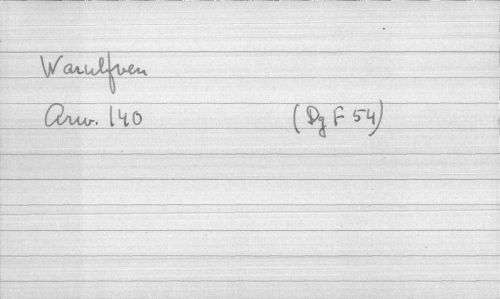 Warulfven
Arw. 140 (Dg F 54)